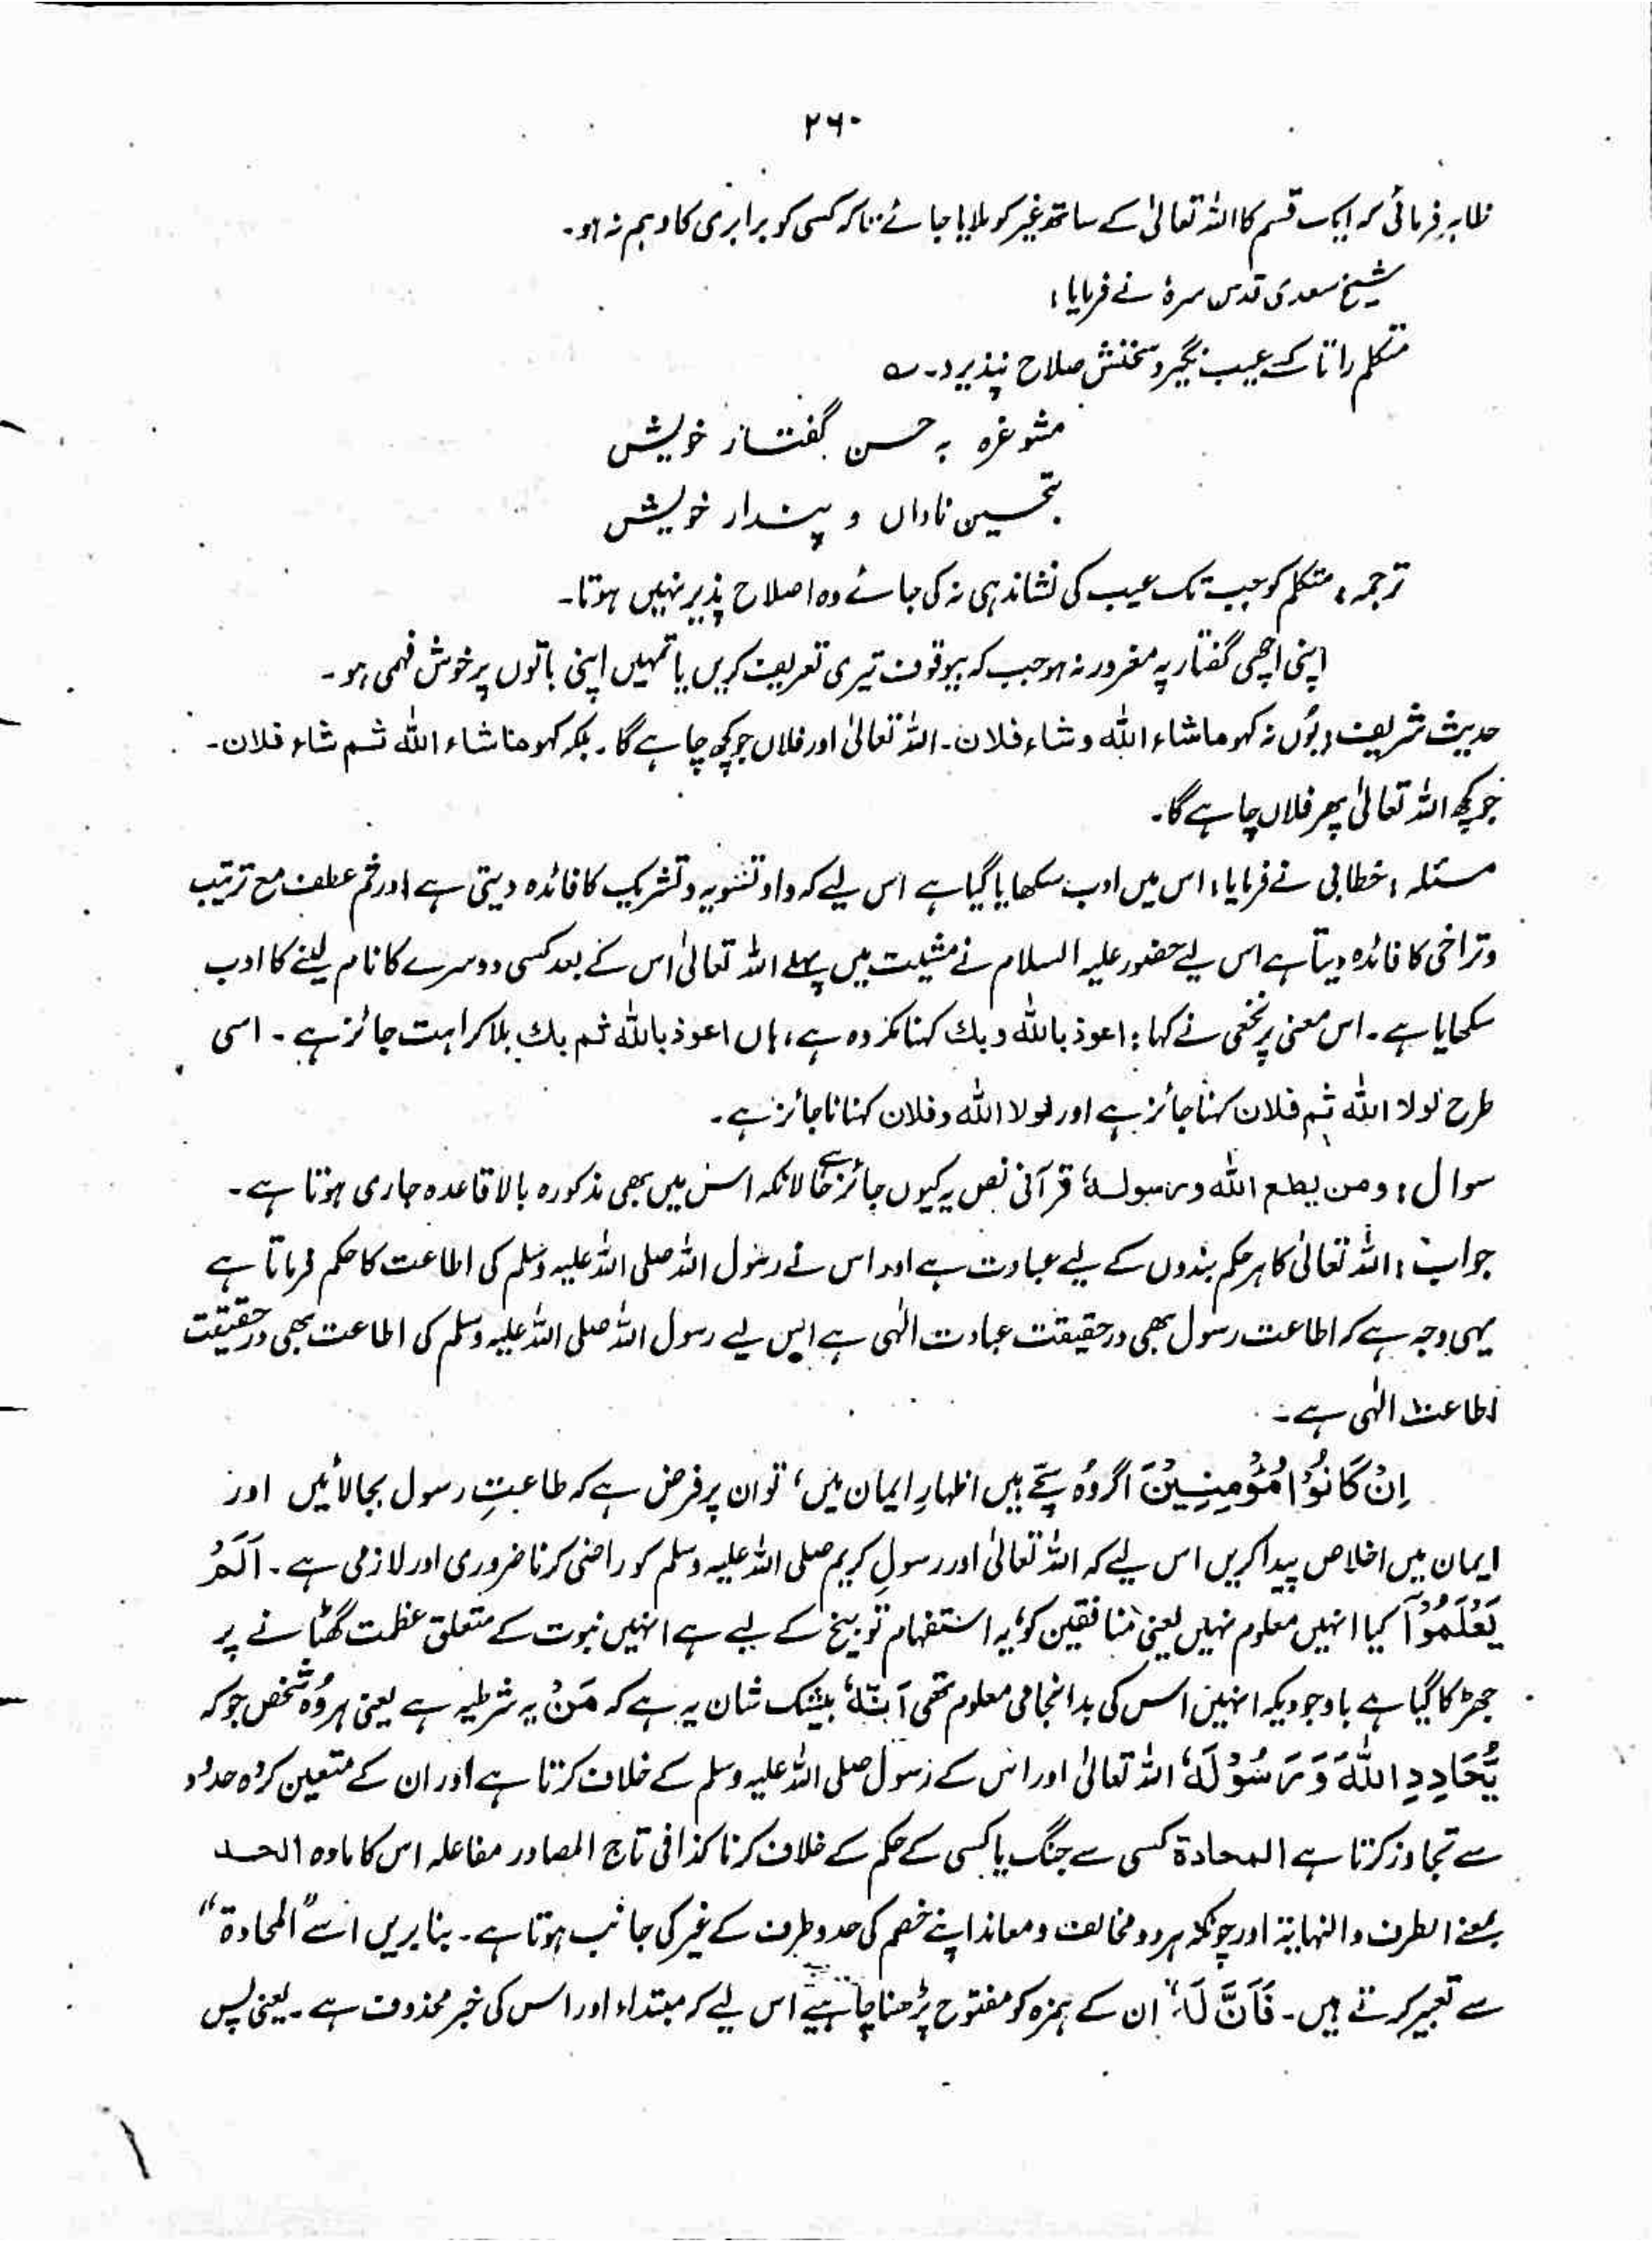 ۲۶۰
ظاہر فرمائی کہ ایک قسم کا اللہ تعالیٰ کے ساتھ غیر کو ملایا جائے تاکہ کسی کو برابری کا وہم نہ ہو۔
شیخ سعدی قدس سرہٗ نے فرمایا:
متکلم را تا کسے عیب نگیرد سخنش صلاح نپذیرد۔ ے
مشو غرہ بہ حسن گفتار خویش
بتحسین ناداں و پندار خویش
ترجمہ: متکلم کو جب تک عیب کی نشاندہی نہ کی جائے وہ اصلاح پذیر نہیں ہوتا۔
اپنی اچھی گفتار پہ مغرور نہ ہو جب کہ بیوقوف تیری تعریف کریں یا تمہیں اپنی باتوں پر خوش فہمی ہو۔
حدیث شریف: یُوں نہ کہو ماشاء اللہ و شاء فلان۔ اللہ تعالیٰ اور فلاں جو کچھ چاہے گا۔ بلکہ کہو ماشاء اللہ ثم شاء فلان۔
جو کچھ اللہ تعالیٰ پھر فلاں چاہے گا۔
مسئلہ: خطابی نے فرمایا: اس میں ادب سکھایا گیا ہے اس لیے کہ واو تسویہ و تشریک کا فائدہ دیتی ہے اور ثم عطف مع ترتیب
و تراخی کا فائدہ دیتا ہے اس لیے حضور علیہ السلام نے مشیت میں پہلے اللہ تعالیٰ اس کے بعد کسی دوسرے کا نام لینے کا ادب
سکھایا ہے۔ اس معنی پر نخعی نے کہا: اعوذ باللہ و بك کہنا مکروہ ہے، ہاں اعوذ باللہ ثم بك بلا کراہت جائز ہے۔ اسی
طرح لولا اللہ ثم فلان کہنا جائز ہے اور لولا اللہ و فلان کہنا ناجائز ہے۔
سوال: ومن یطع اللہ ورسولہٗ قرآنی نص یہ کیوں جائز ہے حالانکہ اس میں بھی مذکورہ بالا قاعدہ جاری ہوتا ہے۔
جواب: اللہ تعالیٰ کا ہر حکم بندوں کے لیے عبادت ہے اور اس نے رسول اللہ صلی اللہ علیہ وسلم کی اطاعت کا حکم فرماتا ہے
یہی وجہ ہے کہ اطاعت رسول بھی درحقیقت عبادت الٰہی ہے اس لیے رسول اللہ صلی اللہ علیہ وسلم کی اطاعت بھی درحقیقت
اطاعت الٰہی ہے۔
اِنْ کَانُوْا مُؤْمِنِیْنَ اگر وُہ سچّے ہیں اظہارِ ایمان میں، تو ان پر فرض ہے کہ طاعتِ رسول بجا لائیں اور
ایمان میں اخلاص پیدا کریں اس لیے کہ اللہ تعالیٰ اور رسولِ کریم صلی اللہ علیہ وسلم کو راضی کرنا ضروری اور لازمی ہے۔ اَلَمْ
یَعْلَمُوْآ کیا انہیں معلوم نہیں یعنی منافقین کو، یہ استفہام توبیخ کے لیے ہے انہیں نبوت کے متعلق عظمت گھٹانے پر
جھڑکا گیا ہے باوجودیکہ انہیں اس کی بدانجامی معلوم تھی اَنَّہٗ بیشک شان یہ ہے کہ مَنْ یہ شرطیہ ہے یعنی ہر وُہ شخص جو کہ
یُّحَادِدِ اللہَ وَرَسُوْلَہٗ اللہ تعالیٰ اور اس کے رسول صلی اللہ علیہ وسلم کے خلاف کرتا ہے اور ان کے متعین کردہ حدود
سے تجاوز کرتا ہے المحادة کسی سے جنگ یا کسی کے حکم کے خلاف کرنا کذا فی تاج المصادر مفاعلہ اس کا مادہ الحد
بمعنے الطرف والنہایۃ اور چونکہ ہر دو مخالف و معاند اپنے خصم کی حد و طرف کے غیر کی جانب ہوتا ہے۔ بنا بریں اسے "المحادة"
سے تعبیر کرتے ہیں۔ فَاَنَّ لَہٗ ان کے ہمزہ کو مفتوح پڑھنا چاہیے اس لیے کہ مبتداء اور اس کی خبر محذوف ہے۔ یعنی پس